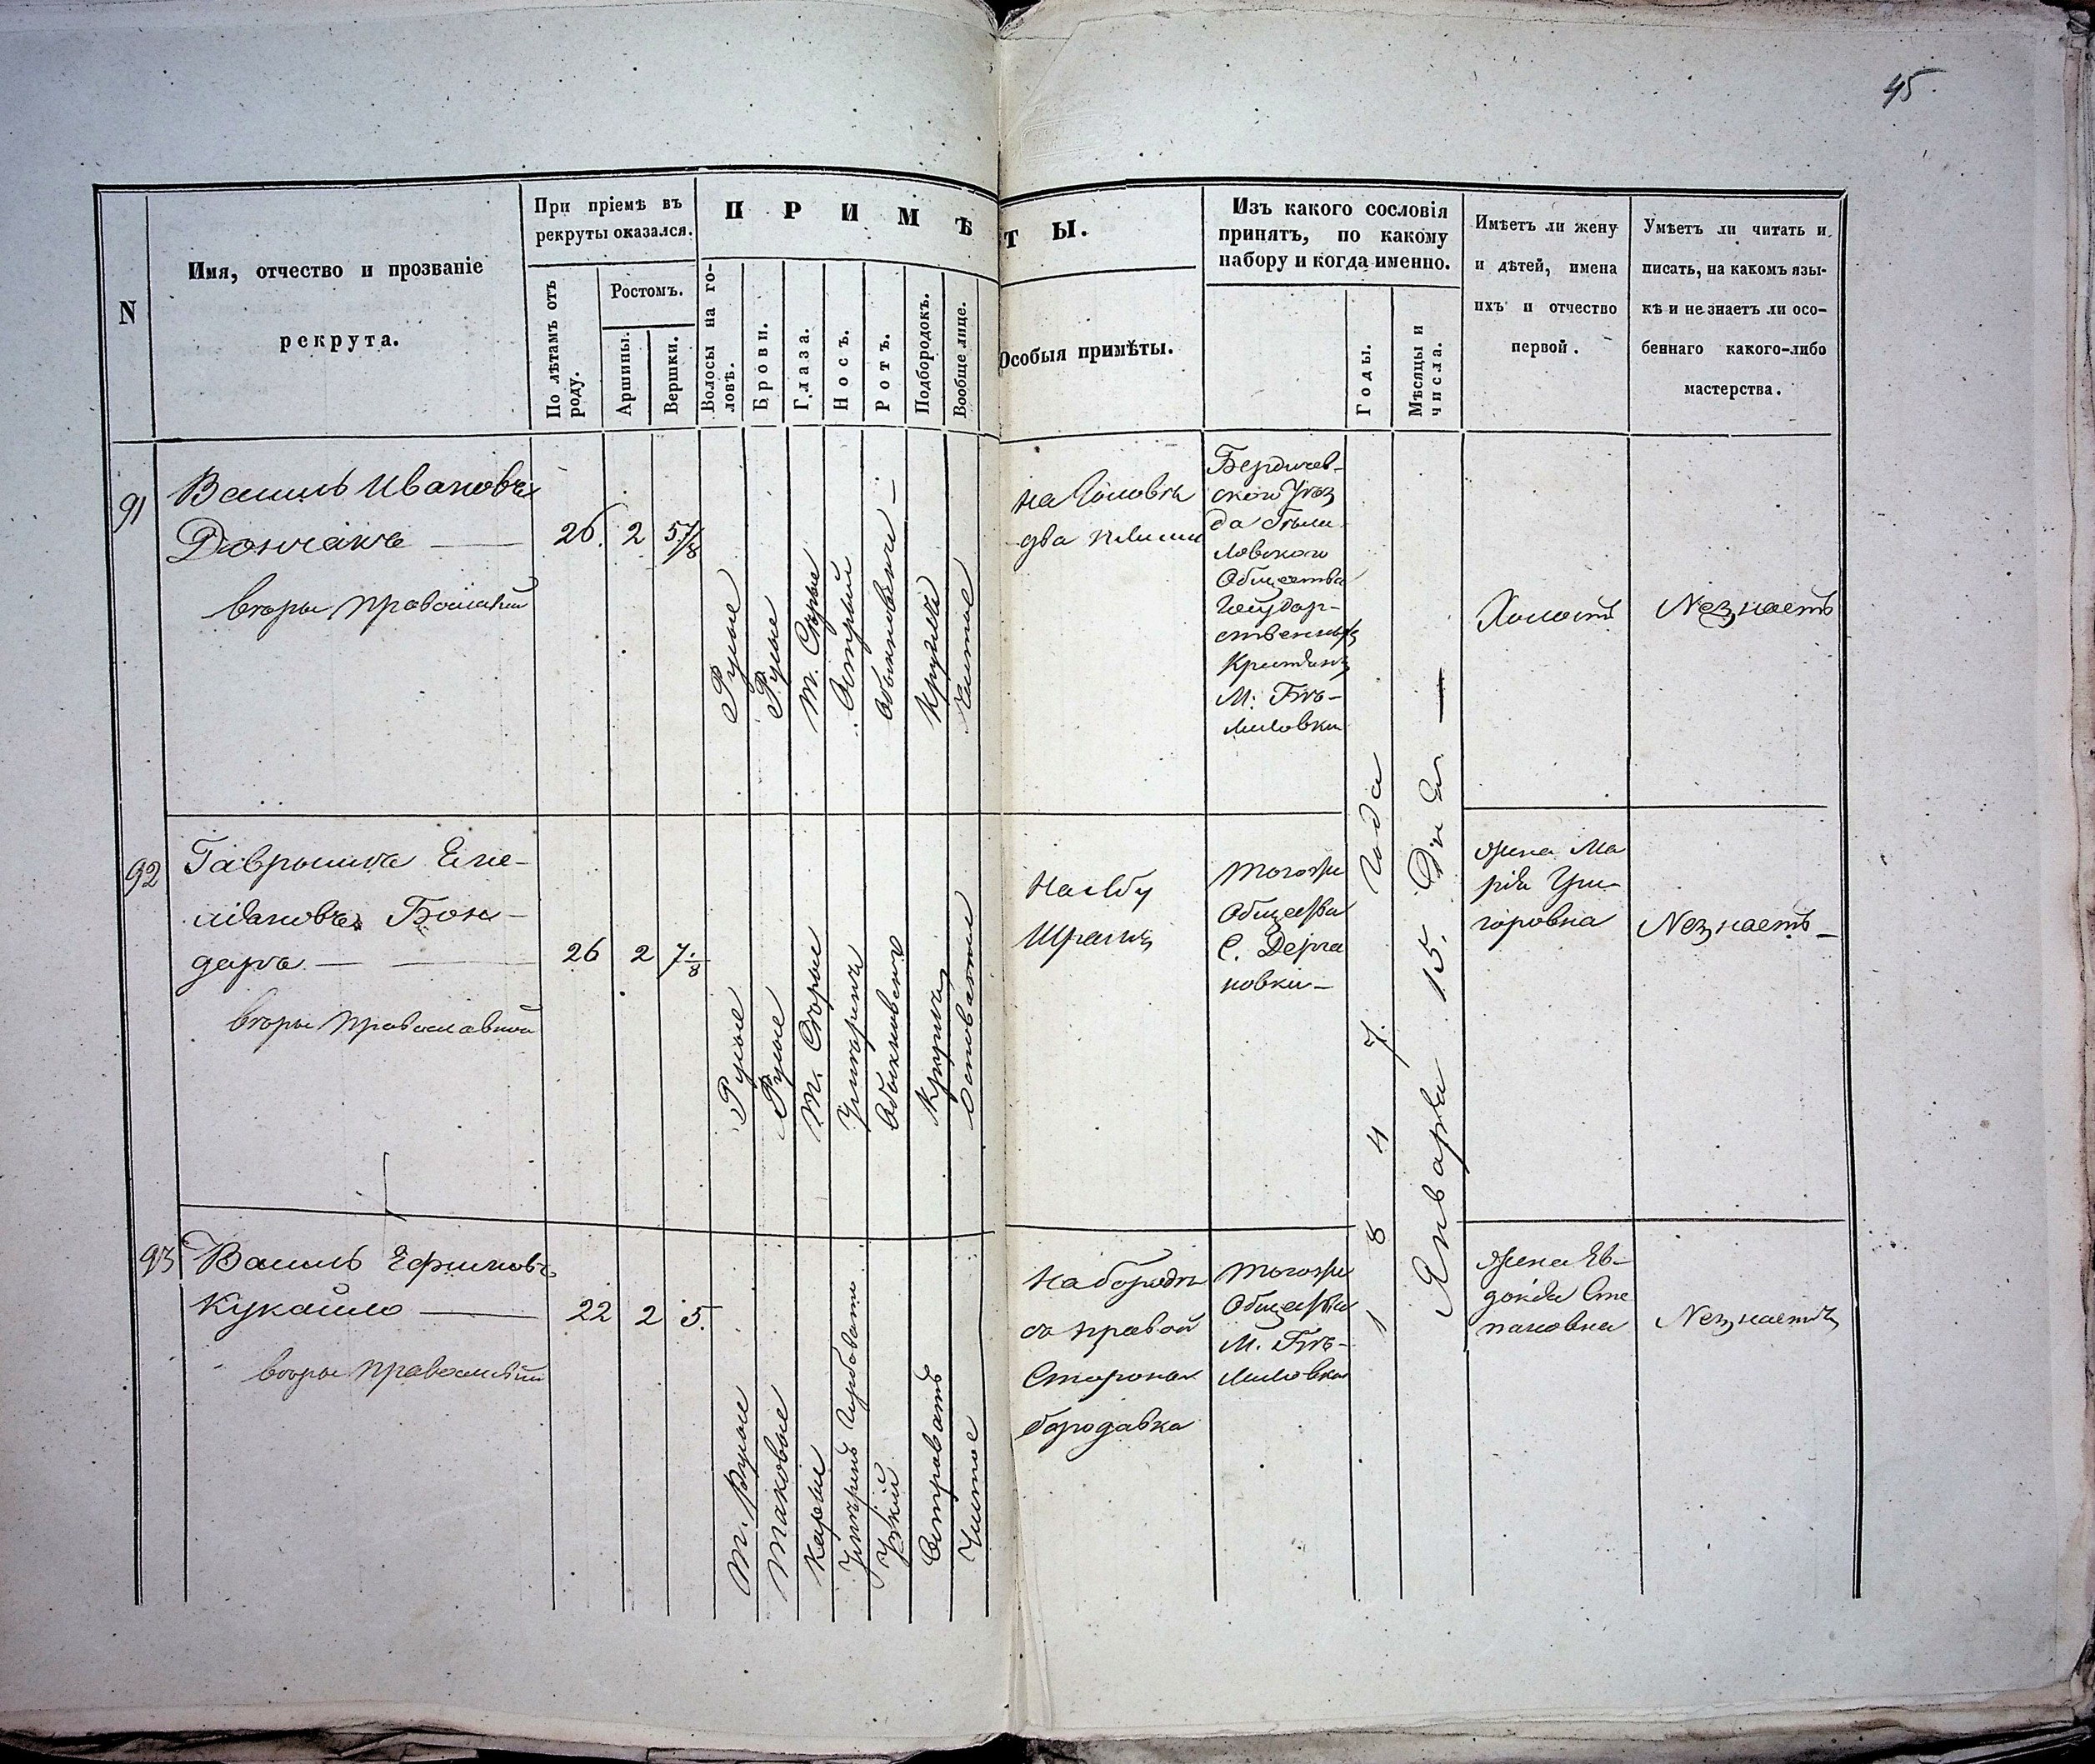 45.
N
Имя, отчество и прозваніе
рекрута.
При пріемѣ въ
рекруты оказался.
По лѣтамъ отъ
роду.
Ростомъ.
Аршины.
Вершки.
ПРИМѢТЫ.
Волосы на го-
ловѣ.
Брови.
Глаза.
Носъ.
Ротъ.
Подбородокъ.
Вообще лице.
Особыя примѣты.
Изъ какого сословія
принятъ, по какому
набору и когда именно.
Годы.
Мѣсяцы и
числа.
Имѣетъ ли жену
и дѣтей, имена
ихъ и отчество
первой.
Умѣетъ ли читать и
писать, на какомъ язы-
кѣ и не знаетъ ли осо-
беннаго какого-либо
мастерства.
91
Василь Ивановъ
вѣры православной
26.
2
5 7/8
Русые
Русые
т. Сѣрые
Острый
обыкновенный
Круглый
Чистое
на головѣ
два
Бердичев-
скаго Уѣз
да
ловскаго
Общества
Государ-
ственныхъ
Крестьянъ
М:
Холостъ
Незнаетъ
92
Гавриила Еме-
льяновъ Бон-
даръ
вѣры православной
26
2
7 1/8
Русые
Русые
т. Сѣрые
Умѣренъ
Обыкновенный
Круглый
на лбу
Шрамъ
тогоже
Общества
С.
новки
жена Ма
рія Гри-
горовна
Незнаетъ
93
Василь Ефимовъ
Кукайло
вѣры православной
22
2
5.
т. Русые
таковые
Карые
Узкій
Островатъ
Чистое
На бородѣ
съ правой
Стороны
бородавка
тогоже
Общества
М.
жена Ев-
докія Сте
пановна
Незнаетъ
1847. года
Января 15. Дня